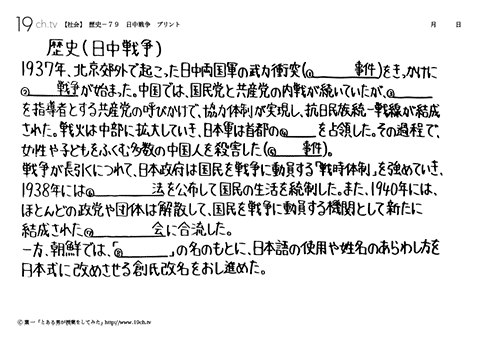 19ch.tv 【社会】 歴史-79 日中戦争 プリント 月 日
歴史(日中戦争)
1937年、北京郊外で起こった日中両国軍の武力衝突(◎ 事件)をきっかけに
◎ 戦争が始まった。中国では、国民党と共産党の内戦が続いていたが、◎
を指導者とする共産党の呼びかけで、協力体制が実現し、抗日民族統一戦線が結成
された。戦火は中部に拡大していき、日本軍は首都の◎ を占領した。その過程で、
女性や子どもをふくむ多数の中国人を殺害した(◎ 事件)。
戦争が長引くにつれて、日本政府は国民を戦争に動員する「戦時体制」を強めていき、
1938年には◎ 法を公布して国民の生活を統制した。また、1940年には、
ほとんどの政党や団体は解散して、国民を戦争に動員する機関として新たに
結成された◎ 会に合流した。
一方、朝鮮では、「◎ 」の名のもとに、日本語の使用や姓名のあらわし方を
日本式に改めさせる創氏改名をおし進めた。
© 葉一「とある男が授業をしてみた」http://www.19ch.tv